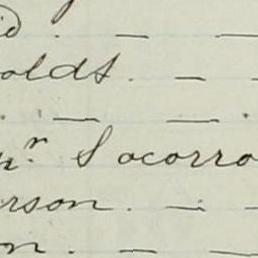 id . — —
olds. — —
. — — .
nr Socorro
rson. — —
on. — —